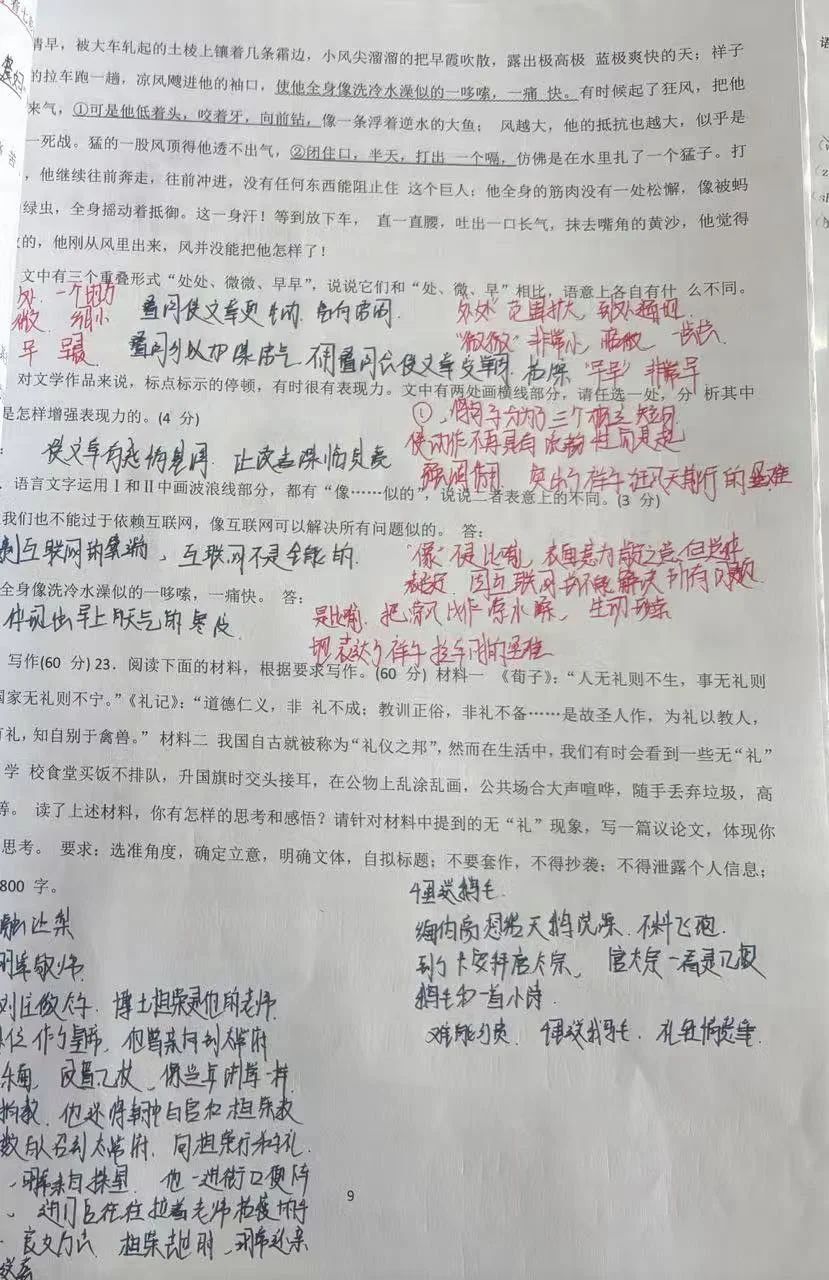 清早，被大车轧起的土棱上镶着几条霜边，小风尖溜溜的把早霞吹散，露出极高极 蓝极爽快的天；祥子
的拉车跑一趟，凉风飕进他的袖口，使他全身像洗冷水澡似的一哆嗦，一痛 快。有时候起了狂风，把他
来气，①可是他低着头，咬着牙，向前钻，像一条浮着逆水的大鱼； 风越大，他的抵抗也越大，似乎是
一死战。猛的一股风顶得他透不出气，②闭住口，半天，打出 一个嗝，仿佛是在水里扎了一个猛子。打
，他继续往前奔走，往前冲进，没有任何东西能阻止住 这个巨人；他全身的筋肉没有一处松懈，像被蚂
绿虫，全身摇动着抵御。这一身汗！等到放下车， 直一直腰，吐出一口长气，抹去嘴角的黄沙，他觉得
的，他刚从风里出来，风并没能把他怎样了！
文中有三个重叠形式“处处、微微、早早”，说说它们和“处、微、早”相比，语意上各自有什 么不同。
处 一个地方
微 细小
早 早晨
叠词使文章更生动
叠词可以加深语气
处处 范围扩大 到处
“微微” 非常小 一点点
“早早” 非常早
对文学作品来说，标点标示的停顿，有时很有表现力。文中有两处画横线部分，请任选一处，分 析其中
是怎样增强表现力的。(4 分)
① 使句子分为了三个 短句
使动作不再具有流畅性
强调作用 突出了祥子在风天前行的艰难
使文章有 让读者深临其境
. 语言文字运用Ⅰ和Ⅱ中画波浪线部分，都有“像……似的”，说说二者表意上的不同。(3 分)
我们也不能过于依赖互联网，像互联网可以解决所有问题似的。 答：
互联网的 ，互联网不是全能的.
“像”不是比喻，表面意为肯定之意，但
否定 因互联网并不能解决所有问题
全身像洗冷水澡似的一哆嗦，一痛快。 答：
体现出早上的天气的寒冷
是比喻. 把凉风比作凉水澡， 生动形象
地表达了祥子拉车时的艰难
写作(60 分) 23．阅读下面的材料，根据要求写作。(60 分) 材料一 《荀子》：“人无礼则不生，事无礼则
国家无礼则不宁。”《礼记》：“道德仁义，非 礼不成；教训正俗，非礼不备……是故圣人作，为礼以教人，
有礼，知自别于禽兽。” 材料二 我国自古就被称为“礼仪之邦”，然而在生活中，我们有时会看到一些无“礼”
学 校食堂买饭不排队，升国旗时交头接耳，在公物上乱涂乱画，公共场合大声喧哗，随手丢弃垃圾，高
等。 读了上述材料，你有怎样的思考和感悟？请针对材料中提到的无“礼”现象，写一篇议论文，体现你
思考。 要求：选准角度，确定立意，明确文体，自拟标题；不要套作，不得抄袭；不得泄露个人信息；
800 字。
融让梨
明帝敬师
刘庄做太子. 博士桓荣是他的老师.
位作了皇帝. 他曾亲自到太常府
东面，设置几杖，像当年讲学一样.
他还将朝中百官和桓荣教
数百人召到太常府，向桓荣行礼.
明帝亲自探望. 他一进街口便下
进门后往往拉着老师
桓荣去世时，明帝还亲
千里送鹅毛.
缅伯高想给天鹅洗澡. 不料飞跑.
到了长安拜唐太宗， 唐太宗一看是几根
鹅毛和一首小诗.
难能可贵. 千里送鹅毛. 礼轻情意重.
9